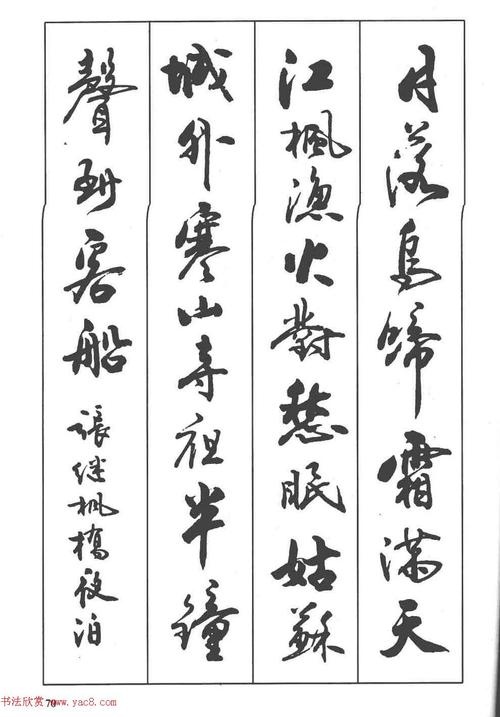 月落烏啼霜滿天
江楓漁火對愁眠姑蘇
城外寒山寺夜半鐘
聲到客船
張继枫橋夜泊
书法欣赏 www.yac8.com
70